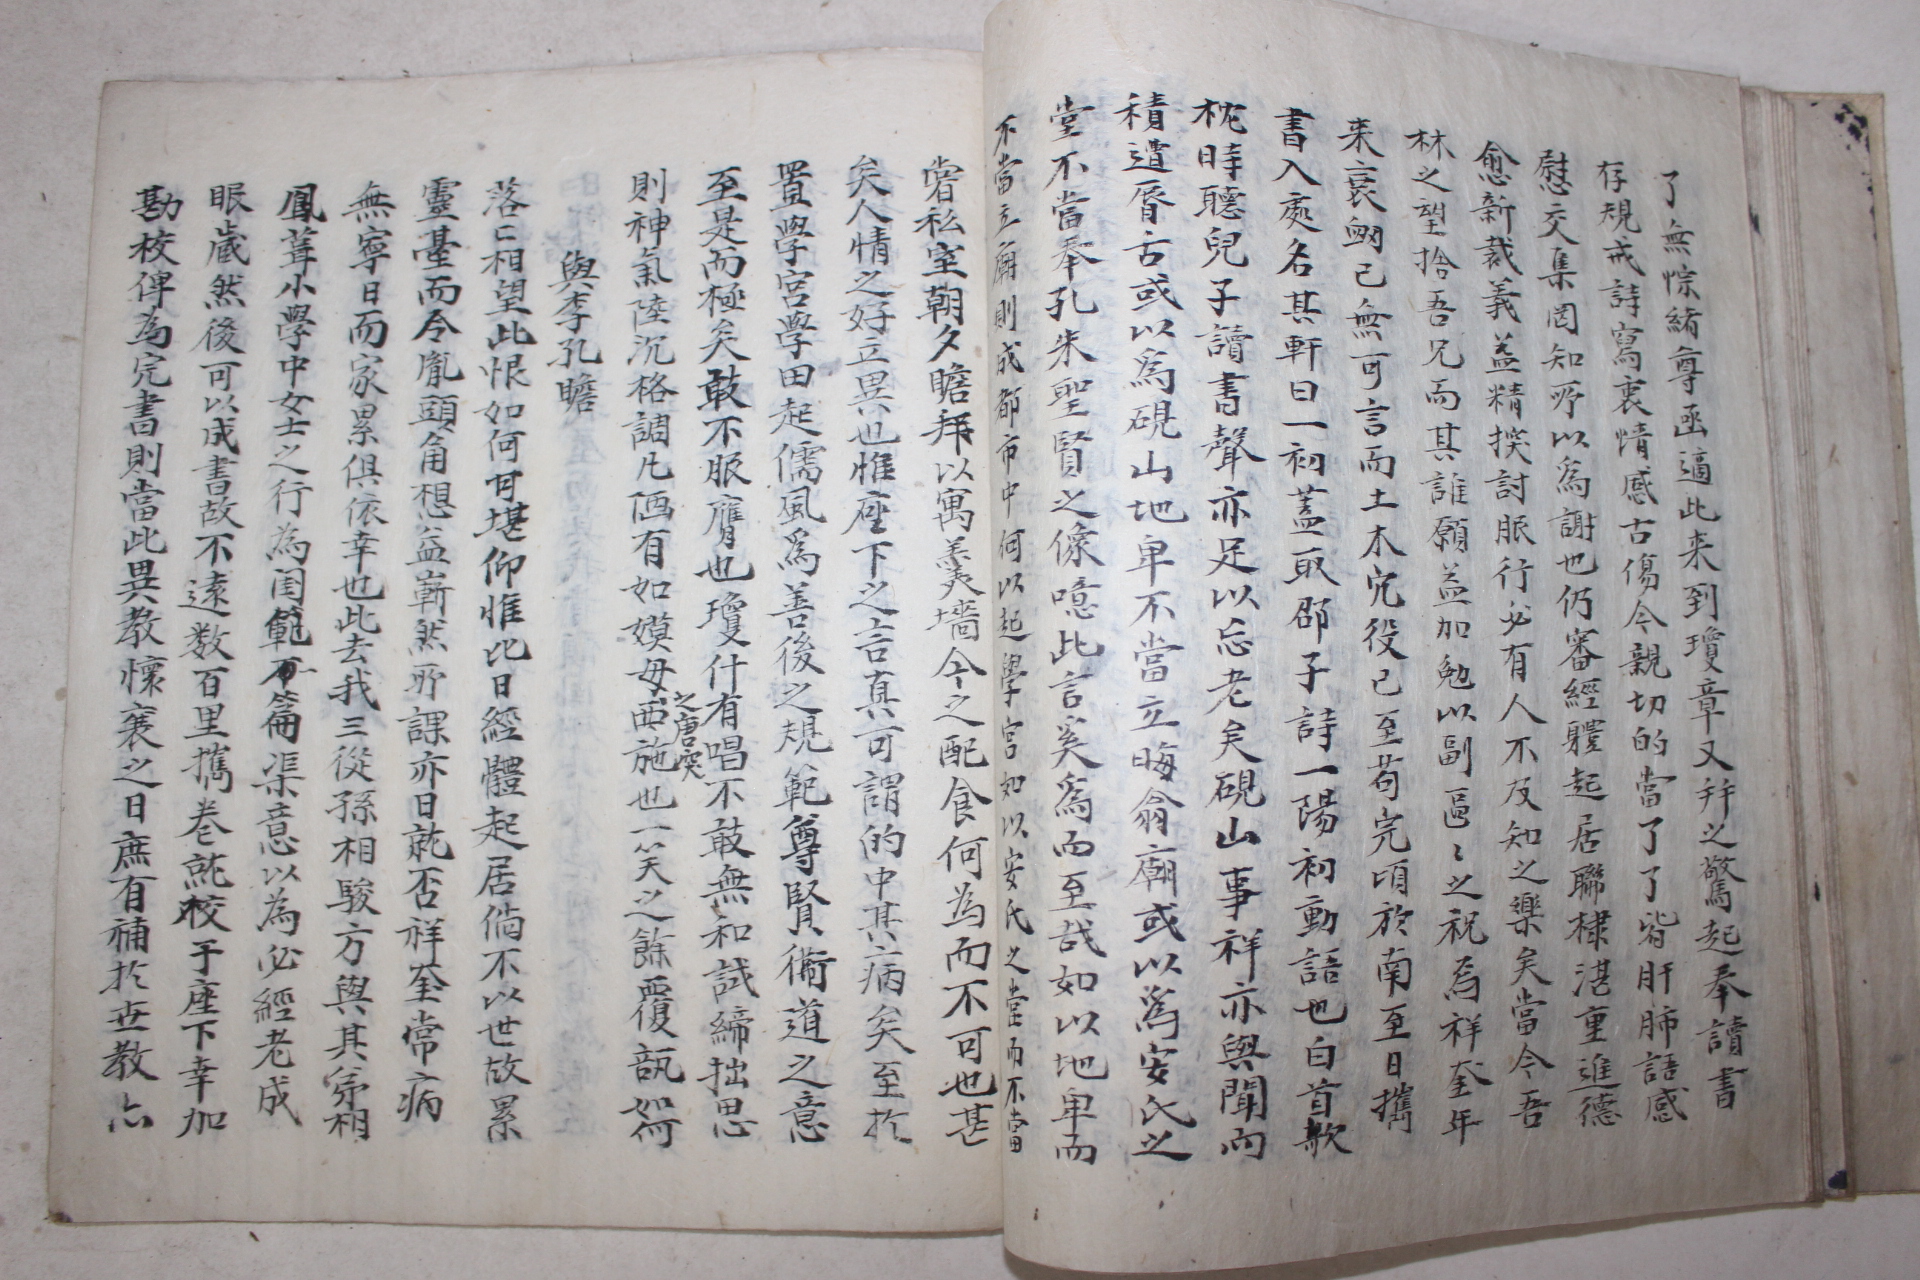 了無悰緖尊函適此来到瓊章又幷之驚起奉讀書
存規戒詩寫衷情感古傷今親切的當了了皆肝肺語感
慰交集罔知所以為謝也仍審經體起居聯棣湛重進德
愈新裁義益精探討服行必有人不及知之樂矣當今吾
林之望捨吾兄而其誰願益加勉以副區〻之祝為祥奎年
来衰衂已無可言而土木宂役已至苟完頃於南至日攜
書入處名其軒曰一初蓋取邵子詩一陽初動語也白首欹
枕時聽兒子讀書聲亦足以忘老矣硯山事祥亦與聞而
積遣脣舌或以為硯山地卑不當立晦翁廟或以為安氏之
堂不當奉孔朱聖賢之像噫此言奚為而至哉如以地卑而
不當立廟則成都市中何以起學宮如以安氏之堂而不當
甞私室朝夕瞻拜以寓羹墻今之配食何為而不可也甚
矣人情之好立異也惟座下之言真可謂的中其病矣至於
置學宮學田起儒風為善後之規範尊賢衛道之意
至是而極矣敢不服膺也瓊什有唱不敢無和試締拙思
則神氣陸沉格調凡陋有如嫫母之唐突西施也一笑之餘覆瓿如何
與李孔瞻
落〻相望此恨如何可堪仰惟比日經體起居倘不以世故累
靈臺而令胤頭角想益嶄然所課亦日就否祥奎常病
無寧日而家累俱依幸也此去我三從孫相駿方與其弟相
鳳葺小學中女士之行為閨範一篇渠意以為必經老成
眼歲然後可以成書故不遠数百里攜卷就校于座下幸加
勘校俾為完書則當此異教懷襄之日庶有補於世教亦